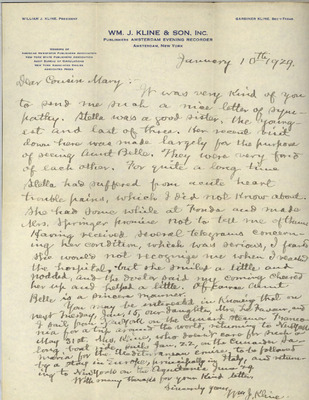 WILLIAM J. KLINE, PRESIDENT
GARDINER KLINE, SEC'Y-TREAS.
WM. J. KLINE & SON, INC.
PUBLISHERS AMSTERDAM EVENING RECORDER
AMSTERDAM, NEW YORK
MEMBERS OF
AMERICAN NEWSPAPER PUBLISHERS ASSOCIATION
NEW YORK STATE PUBLISHERS ASSOCIATION
AUDIT BUREAU OF CIRCULATIONS
ASSOCIATED PRESS
January 10th 1929.
Dear Cousin Mary:—
It was very kind of you
to send me such a nice letter of sym-
pathy. Stella was a good sister, the young-
est and last of three. Her recent visit
down here was made largely for the purpose
of seeing Aunt Belle. They were very fond
of each other. For quite a long time
Stella had suffered from acute heart
trouble pains, which I did not know about.
She had some while at Fonda and made
Mrs. Springer promise not to tell me of them.
Having received several telegrams concern-
ing her condition, which was serious, I feared
she would not recognize me when I reached
the hospital, but she smiled a little and
nodded, and the doctor said my coming cheered
her up and helped a little. Of course Aunt
Belle is a sincere mourner.
You may be interested in knowing that on
next Tuesday, Jan. 15, our daughter, Mrs.
and I sail from New York on the Cunard steamer Franco-
nia for a trip around the world, returning to New York
May 31st. Mrs. Kline, who would care for such a
long boat ride, sails Jan. 22, in the Cunarder
for the Mediterranean cruise to be followed
by a stay in Europe, principally in Italy, and return-
ing to New York on the Aquitania June
With many thanks for your kind letter,
Sincerely yours,
Wm J. Kline.